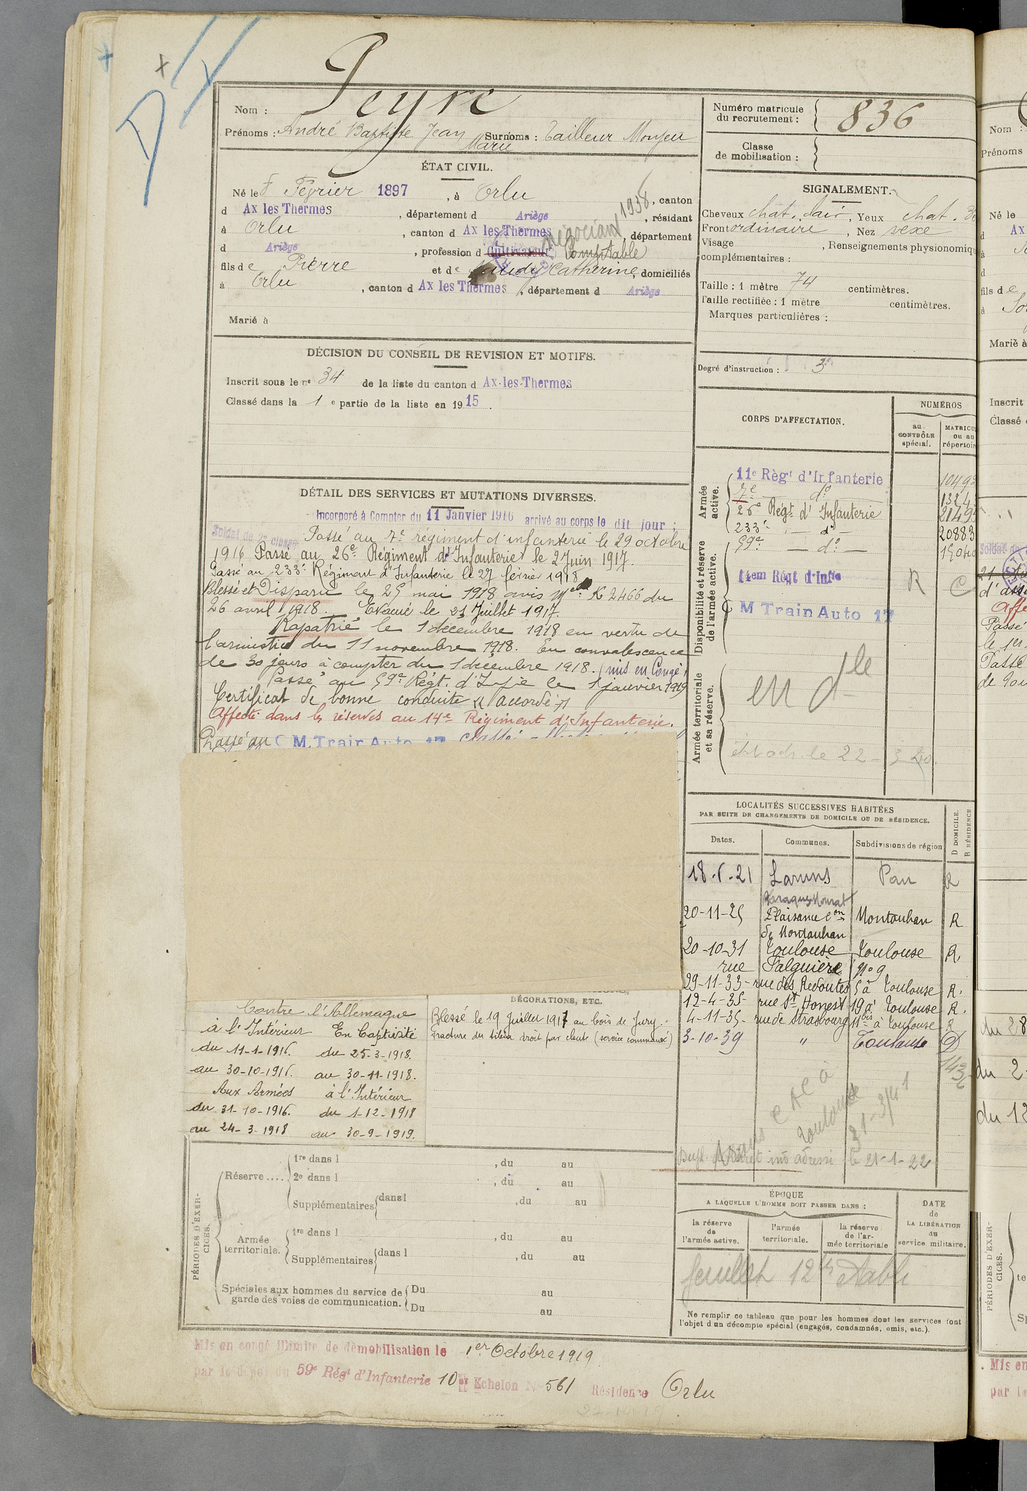 Nom : Peyre
Prénoms : André Baptiste Jean Marie Surnoms : Tailleur Monjeu
ÉTAT CIVIL.
Né le 8 Février 1897, à Orlu, canton
d Ax les Thermes, département d Ariège, résidant
à Orlu, canton d Ax les Thermes, département
d Ariège, profession d cultivateur Comptable négociant 1938
fils de Pierre et de Catherine domiciliés
à Orlu, canton d Ax les Thermes, département d Ariège
Marié à
DÉCISION DU CONSEIL DE REVISION ET MOTIFS.
Inscrit sous le n° 34 de la liste du canton d Ax-les-Thermes
Classé dans la 1e partie de la liste en 1915.
DÉTAIL DES SERVICES ET MUTATIONS DIVERSES.
Incorporé à Compter du 11 Janvier 1916 arrivé au corps le dit jour ;
Soldat de 2e classe Passé au 7e régiment d'infanterie le 29 octobre
1916. Passé au 26e Régiment d'Infanterie le 2 Juin 1917.
Passé au 233e Régiment d'Infanterie le 27 février 1918
Blessé et Disparu le 25 mai 1918 avis M el K 2466 du
26 avril 1918. Evacué le 21 Juillet 1917.
Rapatrié le 1 décembre 1918 en vertu de
l'armistice du 11 novembre 1918. En convalescence
de 30 jours à compter du 1 décembre 1918. (mis en Congé
Passé au 59e Régt. d'Infie le 1 janvier 1919
Certificat de bonne conduite "accordé"
Affecté dans les réserves au 14e Régiment d'Infanterie.
Passé au C M. Train Auto 17
Contre l'Allemagne
à l'Intérieur En Captivité
du 11-1-1916. du 25-3-1918.
au 30-10-1916. au 30-11-1918.
Aux Armées à l'Intérieur
du 31-10-1916. du 1-12-1918
au 24-3-1918 au 30-9-1919.
DÉCORATIONS, ETC.
Blessé le 19 Juillet 1917 au bois de Jury :
Fracture du tibia droit par chute (service commandé)
PÉRIODES D'EXERCICES.
Réserve .... 1re dans l , du au
2e dans l , du au
Supplémentaires dans l , du au
Armée territoriale. 1re dans l , du au
Supplémentaires dans l , du au
Spéciales aux hommes du service de garde des voies de communication. Du au
Du au
Mis en congé illimité de démobilisation le 1er Octobre 1919
par le dépôt du 59e Régt d'Infanterie 10e Echelon N° 561 Résidence Orlu
Numéro matricule du recrutement : 836
Classe de mobilisation :
SIGNALEMENT.
Cheveux chat. clair, Yeux chat.
Front ordinaire, Nez vexe
Visage , Renseignements physionomiques
complémentaires :
Taille : 1 mètre 74 centimètres.
Taille rectifiée : 1 mètre centimètres.
Marques particulières :
Degré d'instruction : 3
CORPS D'AFFECTATION.
NUMÉROS
AU CONTRÔLE spécial.
MATRICULE OU AU répertoire
Armée active.
11e Régt d'Infanterie
7e do
26e Régt d'Infanterie
233e — do —
59e — do —
20883
Disponibilité et réserve de l'armée active.
14em Régt d'Infie R C
C M Train Auto 17
Armée territoriale et sa réserve.
en dlle
LOCALITÉS SUCCESSIVES HABITÉES
PAR SUITE DE CHANGEMENTS DE DOMICILE OU DE RÉSIDENCE.
Dates. Communes. Subdivisions de région D DOMICILE. R RÉSIDENCE
18-6-21 Laruns Pau R
20-11-25 Plaisance con de Montauban Montauban R
20-10-31 Toulouse Toulouse R
rue Palguière n° 9
29-11-33- rue des Redoutes 5 à Toulouse R.
12-4-35- rue St Honest 19 à Toulouse R.
4-11-35- rue de Strasbourg 11bis à Toulouse R
3-10-39 " Toulouse D
Toulouse
le 21-1-22
ÉPOQUE
A LAQUELLE L'HOMME DOIT PASSER DANS :
la réserve de l'armée active.
l'armée territoriale.
la réserve de l'armée territoriale
DATE de LA LIBÉRATION du service militaire.
feuillet 12
Ne remplir ce tableau que pour les hommes dont les services font
l'objet d'un décompte spécial (engagés, condamnés, omis, etc.).
Nom :
Prénoms
Né le
fils de
Marié à
Inscrit
Classé
PÉRIODES D'EXERCICES.
Mis en
par le